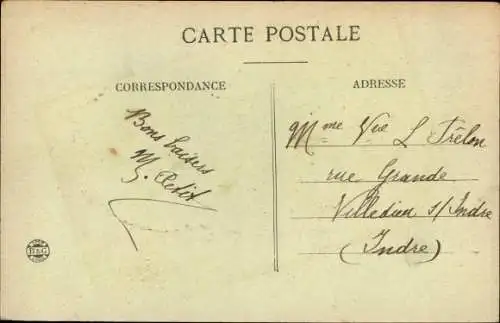 CARTE POSTALE
CORRESPONDANCE
ADRESSE
Bons baisers
M. Petit
Mme Vve L Trêlon
rue Grande
Villedieu s/ Indre
(Indre)